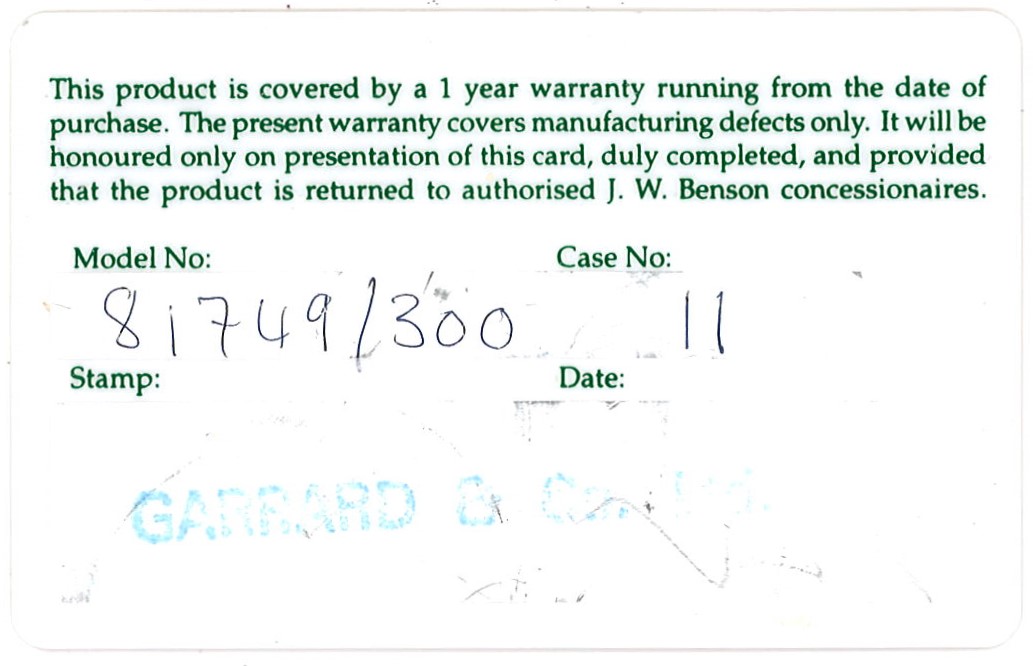 This product is covered by a 1 year warranty running from the date of
purchase. The present warranty covers manufacturing defects only. It will be
honoured only on presentation of this card, duly completed, and provided
that the product is returned to authorised J. W. Benson concessionaires.
Model No: Case No:
81749/300 11
Stamp: Date:
GARRARD & Co. Ltd.